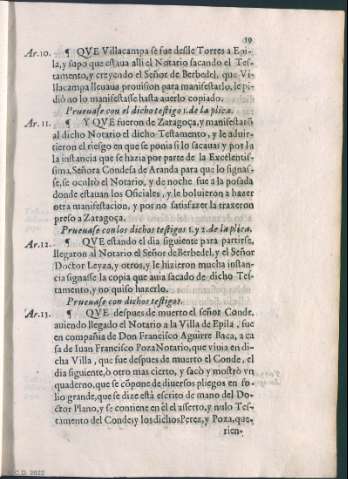 19
Ar.10. ¶ QVE Villacampa se fue desde Torres a Epi-
la, y supo que estaua alli el Notario sacando el Tes-
tamento, y creyendo el Señor de Berbedel, que Vi-
llacampa lleuaua prouision para manifestarlo, le pi-
dió no lo manifestasse hasta auerlo copiado.
Prueuase con el dicho testigo 1. de la plica.
Ar.11. ¶ Y QVE fueron de Zaragoça, y manifestarõ
al dicho Notario el dicho Testamento, y le aduir-
tieron el riesgo en que se ponia si lo sacauas y por la
la instancia que se hazia por parte de la Excelentis-
sima, Señora Condesa de Aranda para que lo signas-
se, se ocultò el Notario, y de noche fue a la posada
donde estauan los Oficiales, y le boluieron a hazer
otra manifestacion, y por no satisfazer la traxeron
preso a Zaragoça.
Prueuase con los dichos testigos 1. y 2. de la plica.
Ar.12. ¶ QVE estando el dia siguiente para partirse,
llegaron al Notario el Señor de Berbedel, y el Señor
Doctor Leyza, y otros, y le hizieron mucha instan-
cia signasse la copia que auia sacado de dicho Tes-
tamento, y no quiso hazerlo.
Prueuase con dichos testigos.
Ar.13. ¶ QVE despues de muerto el señor Conde,
auiendo llegado el Notario a la Villa de Epila, fue
en compañia de Don Francisco Aguirre Baca, a ca
sa de Iuan Francisco Poza Notario, que viuia en di-
cha Villa, que fue despues de muerto el Conde, el
dia siguiente, ò otro mas cierto, y sacò y mostrò vn
quaderno, que se cõpone de diuersos pliegos en fo-
lio grande, que se dize està escrito de mano del Do-
ctor Plano, y se contiene en èl el aserto, y nulo Tes-
tamento del Conde; y los dichos Perez, y Poza, que-
rien-
C.D. 2022